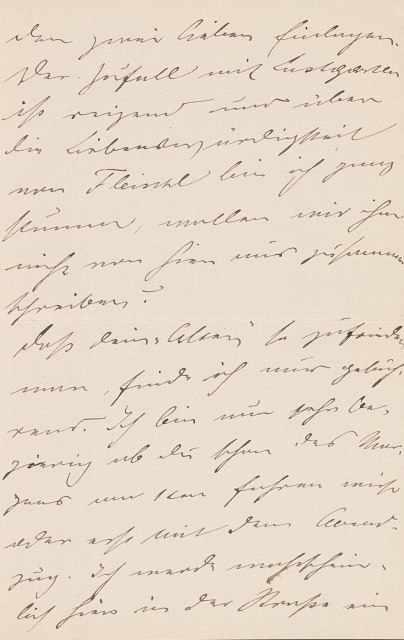 den zwei lieben Einlagen.
Der Zufall mit Lustgarten
ist reizend und über
die Liebenswürdigkeit
von Fleischl bin ich ganz
stumm, wollen wir ihm
nicht von hier aus zusammen
schreiben?
Daß dein "Alter" so zufrieden
war, finde ich nur gebüh-
rend. Ich bin nun sehr be-
gierig ob du schon des Mor-
gens um Uhr fahren wirst
oder erst mit dem Abend-
zug. Ich werde wahrschein-
lich hier in der Straße ein